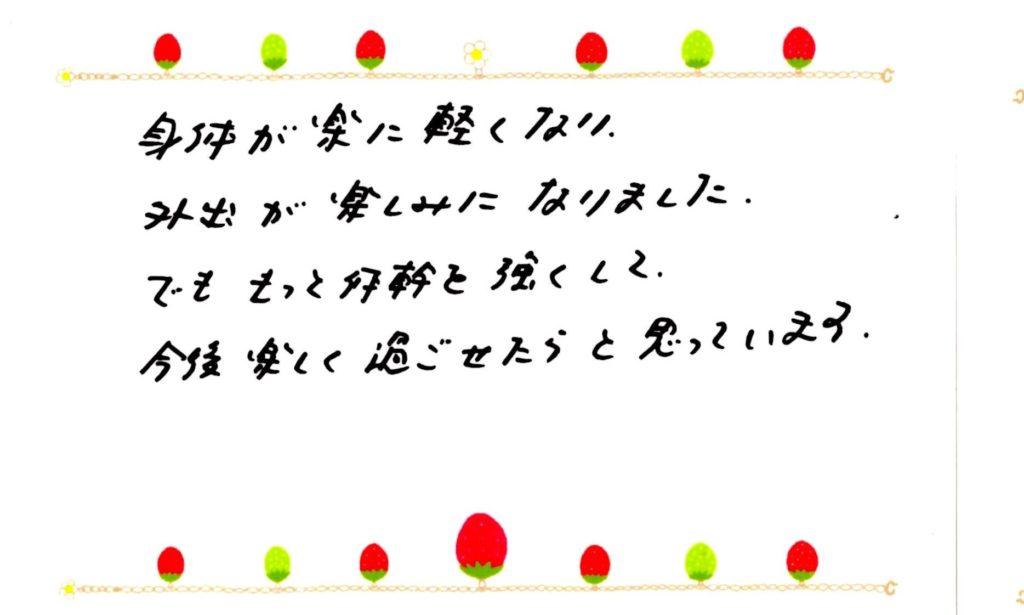 身体が楽に軽くなり.
外出が楽しみになりました.
でも もっと体幹を強くして.
今後楽しく過ごせたらと思っています.